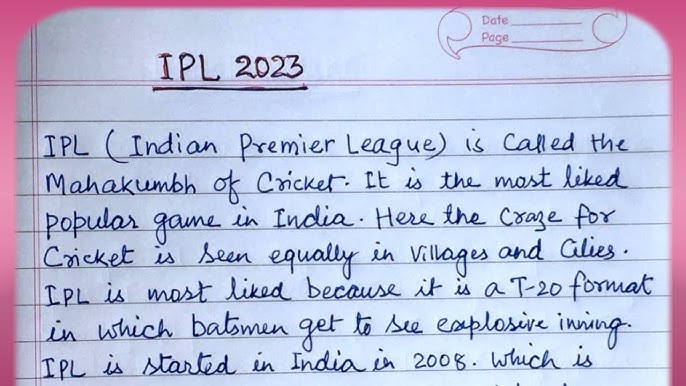 Date
Page
IPL 2023
IPL ( Indian Premier League) is Called the
Mahakumbh of Cricket. It is the most liked
popular game in India. Here the Craze for
Cricket is seen equally in Villages and Cities.
IPL is most liked because it is a T-20 format
in which batsmen get to see explosive inning.
IPL is started in India in 2008. Which is